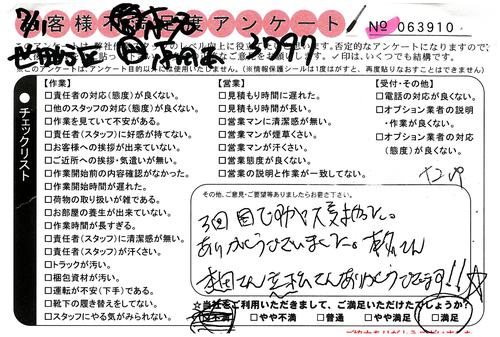 7/11
お客様不満足度アンケート
№ 063910
3897
※このアンケートは、アンケート目的以外に使用いたしません。(※情報保護シールは1度はがすと、再度貼りなおすことはできません)
●チェックリスト
【作業】
□責任者の対応(態度)が良くない。
□他のスタッフの対応(態度)が良くない。
□作業を見ていて不安がある。
□責任者(スタッフ)に好感が持てない。
□お客様への挨拶が出来ていない。
□ご近所への挨拶・気遣いが無い。
□作業開始前の内容確認がなかった。
□作業開始時間が遅れた。
□荷物の取り扱いが雑である。
□お部屋の養生が出来ていない。
□作業時間が長すぎる。
□責任者(スタッフ)に清潔感が無い。
□責任者(スタッフ)が汗くさい。
□トラックが汚い。
□梱包資材が汚い。
□運転が不安(下手)である。
□靴下の履き替えをしてない。
□スタッフにやる気がみられない。
【営業】
□見積もり時間に遅れた。
□見積もり時間が長い。
□営業マンに清潔感が無い。
□営業マンが煙草くさい。
□営業マンが汗くさい。
□営業態度が良くない。
□営業の説明と作業が一致してない。
【受付・その他】
□電話の対応が良くない。
□オプション業者の説明
・作業が良くない。
□オプション業者の対応
(態度)が良くない。
その他、ご意見・ご要望等ありましたらお書き下さい。
3回目で
ありがとうございました。
さん
さん さんありがとうございます!!☆
☆当社をご利用いただきまして、ご満足いただけたでしょうか?
□不満 □やや不満 □普通 □やや満足 □満足
ご協力ありがとうございました